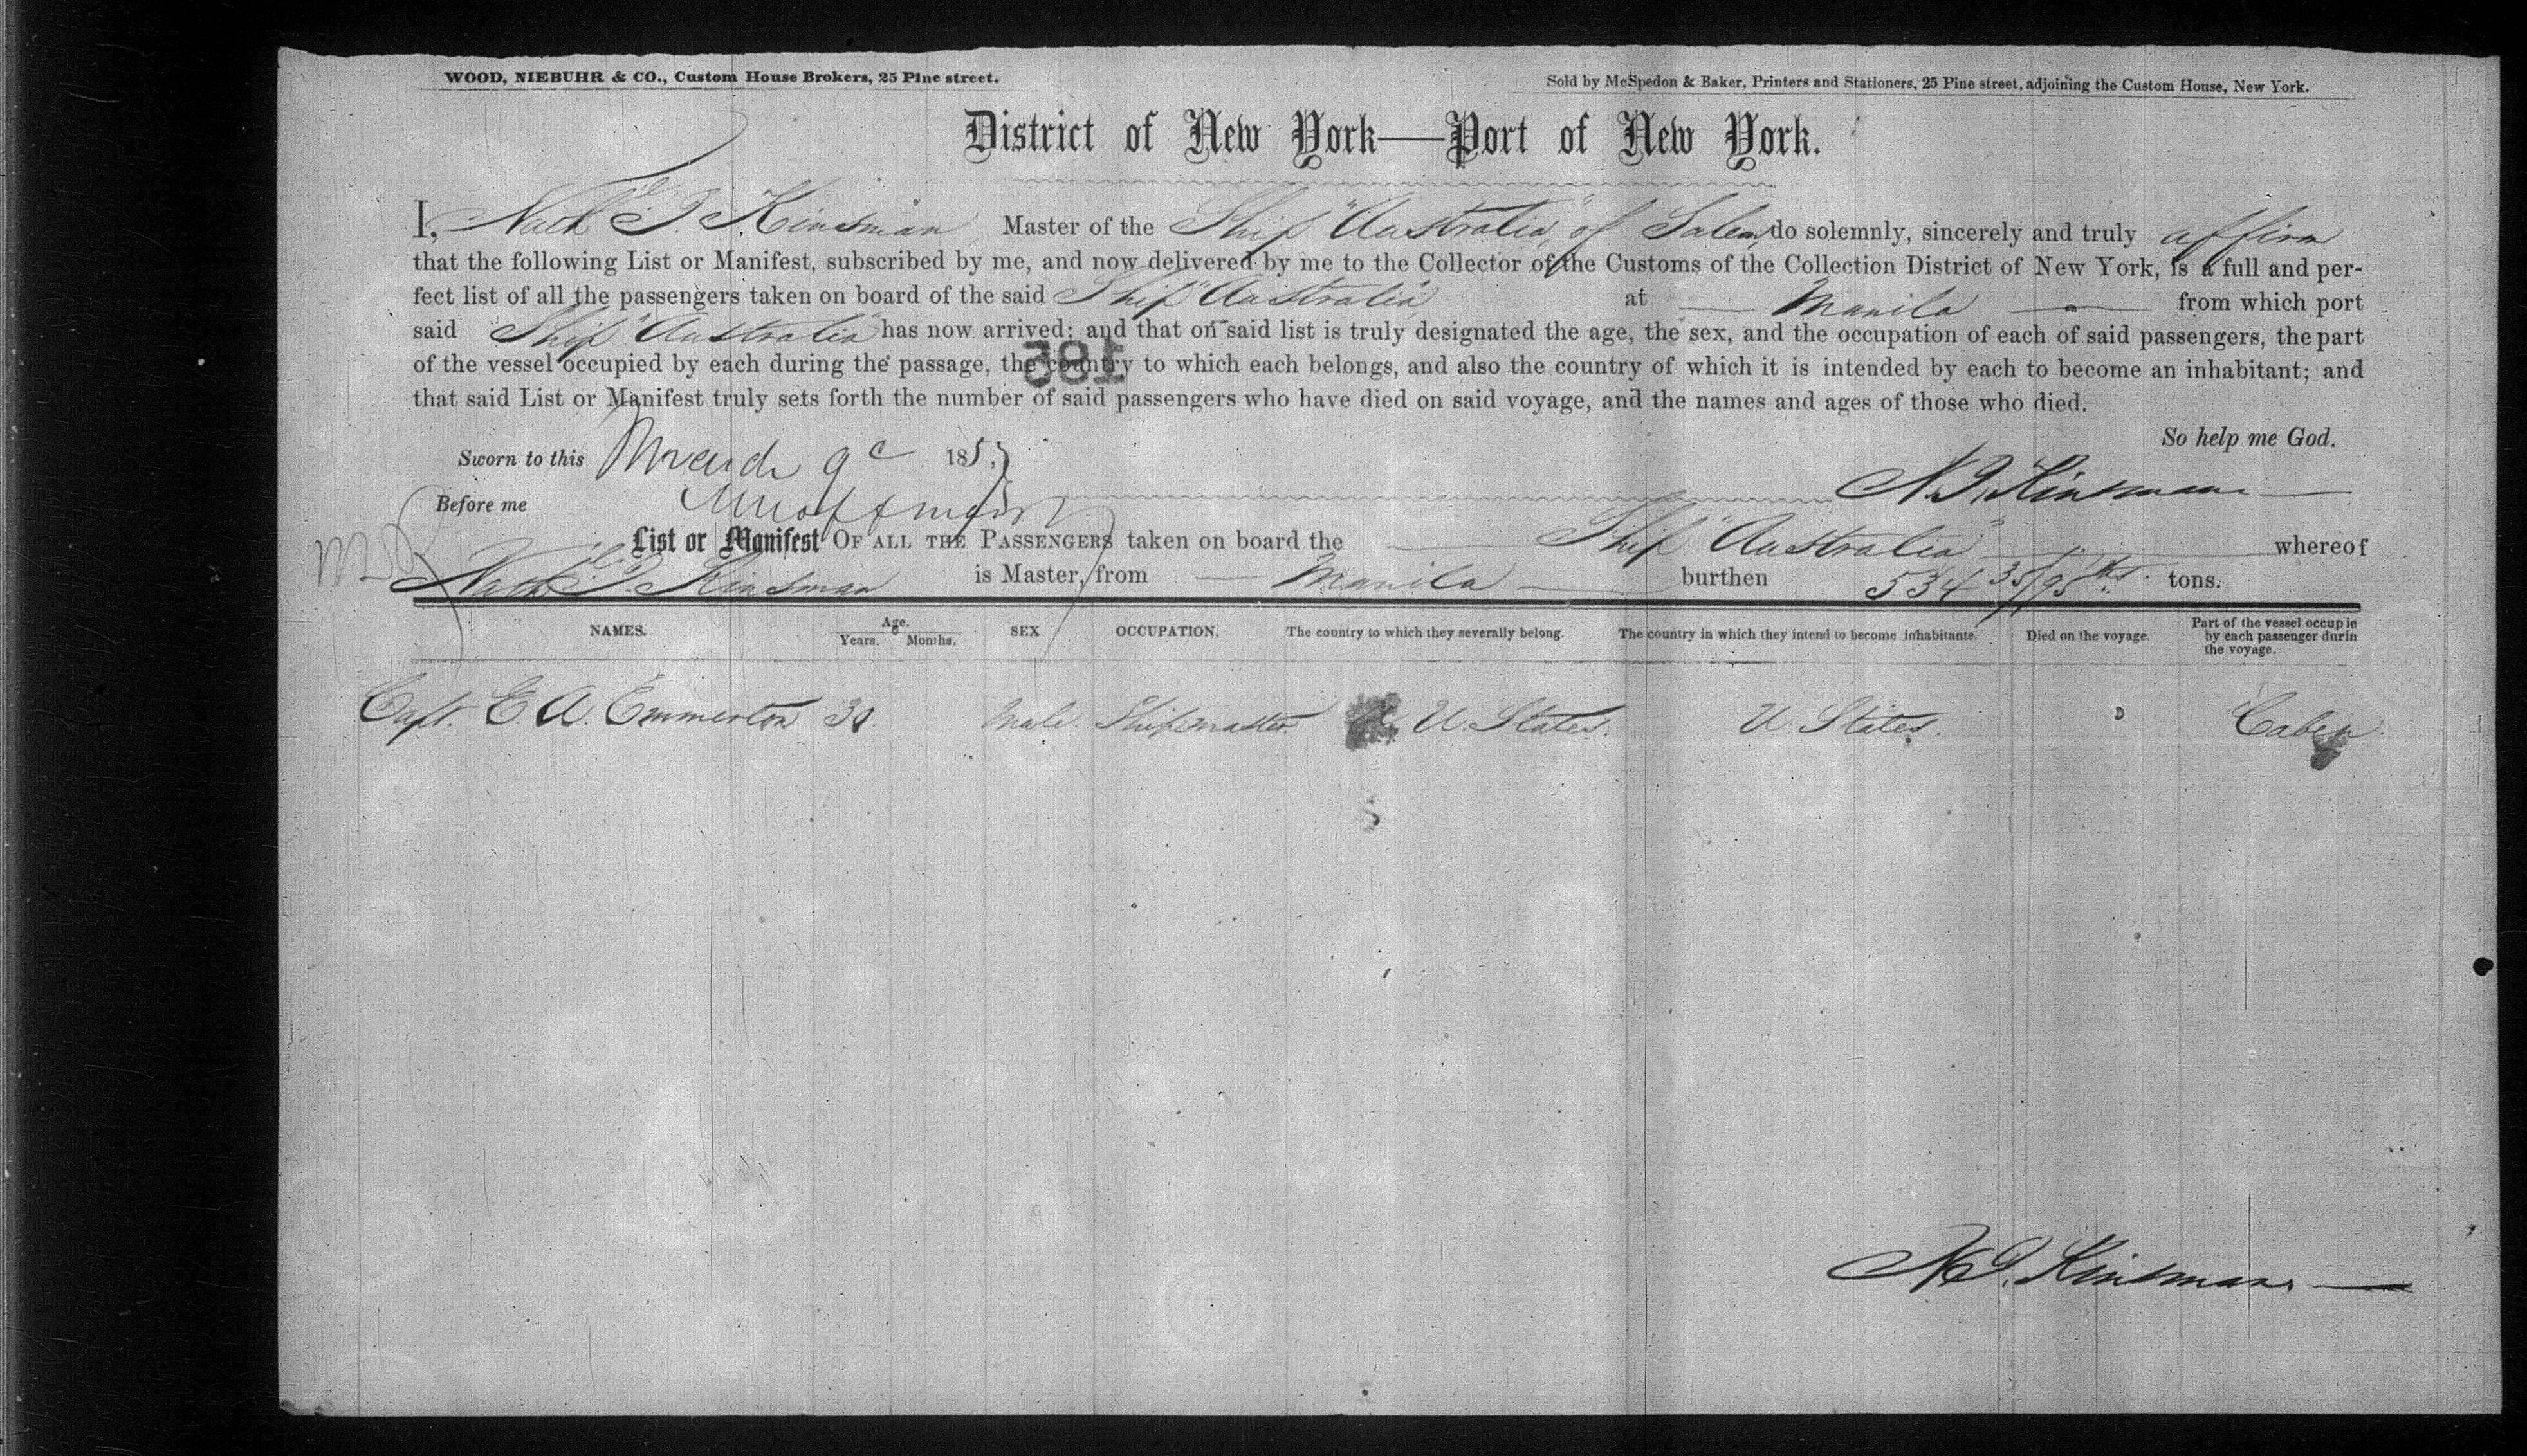 WOOD, NIEBUHR & CO., Custom House Brokers, 25 Pine street.
Sold by McSpedon & Baker, Printers and Stationers, 25 Pine street, adjoining the Custom House, New York.
District of New York—Port of New York.
I, Nathl P. Kinsman, Master of the Ship "Australia," of Salem, do solemnly, sincerely and truly affirm
that the following List or Manifest, subscribed by me, and now delivered by me to the Collector of the Customs of the Collection District of New York, is a full and per-
fect list of all the passengers taken on board of the said Ship "Australia" at Manila from which port
said Ship "Australia" has now arrived; and that on said list is truly designated the age, the sex, and the occupation of each of said passengers, the part
of the vessel occupied by each during the passage, the country to which each belongs, and also the country of which it is intended by each to become an inhabitant; and
that said List or Manifest truly sets forth the number of said passengers who have died on said voyage, and the names and ages of those who died.
So help me God.
Sworn to this March 9 185
Before me
N. P. Kinsman
List or Manifest OF ALL THE PASSENGERS taken on board the Ship "Australia" whereof
Nathl P. Kinsman is Master, from Manila burthen 534 35/95ths tons.
NAMES. Age. Years. Months. SEX OCCUPATION. The country to which they severally belong. The country in which they intend to become inhabitants. Died on the voyage. Part of the vessel occupie by each passenger durin the voyage.
Capt. E. A. Emmerton 30. Male. Shipmaster. U. States. U. States. Cabin.
N. P. Kinsman